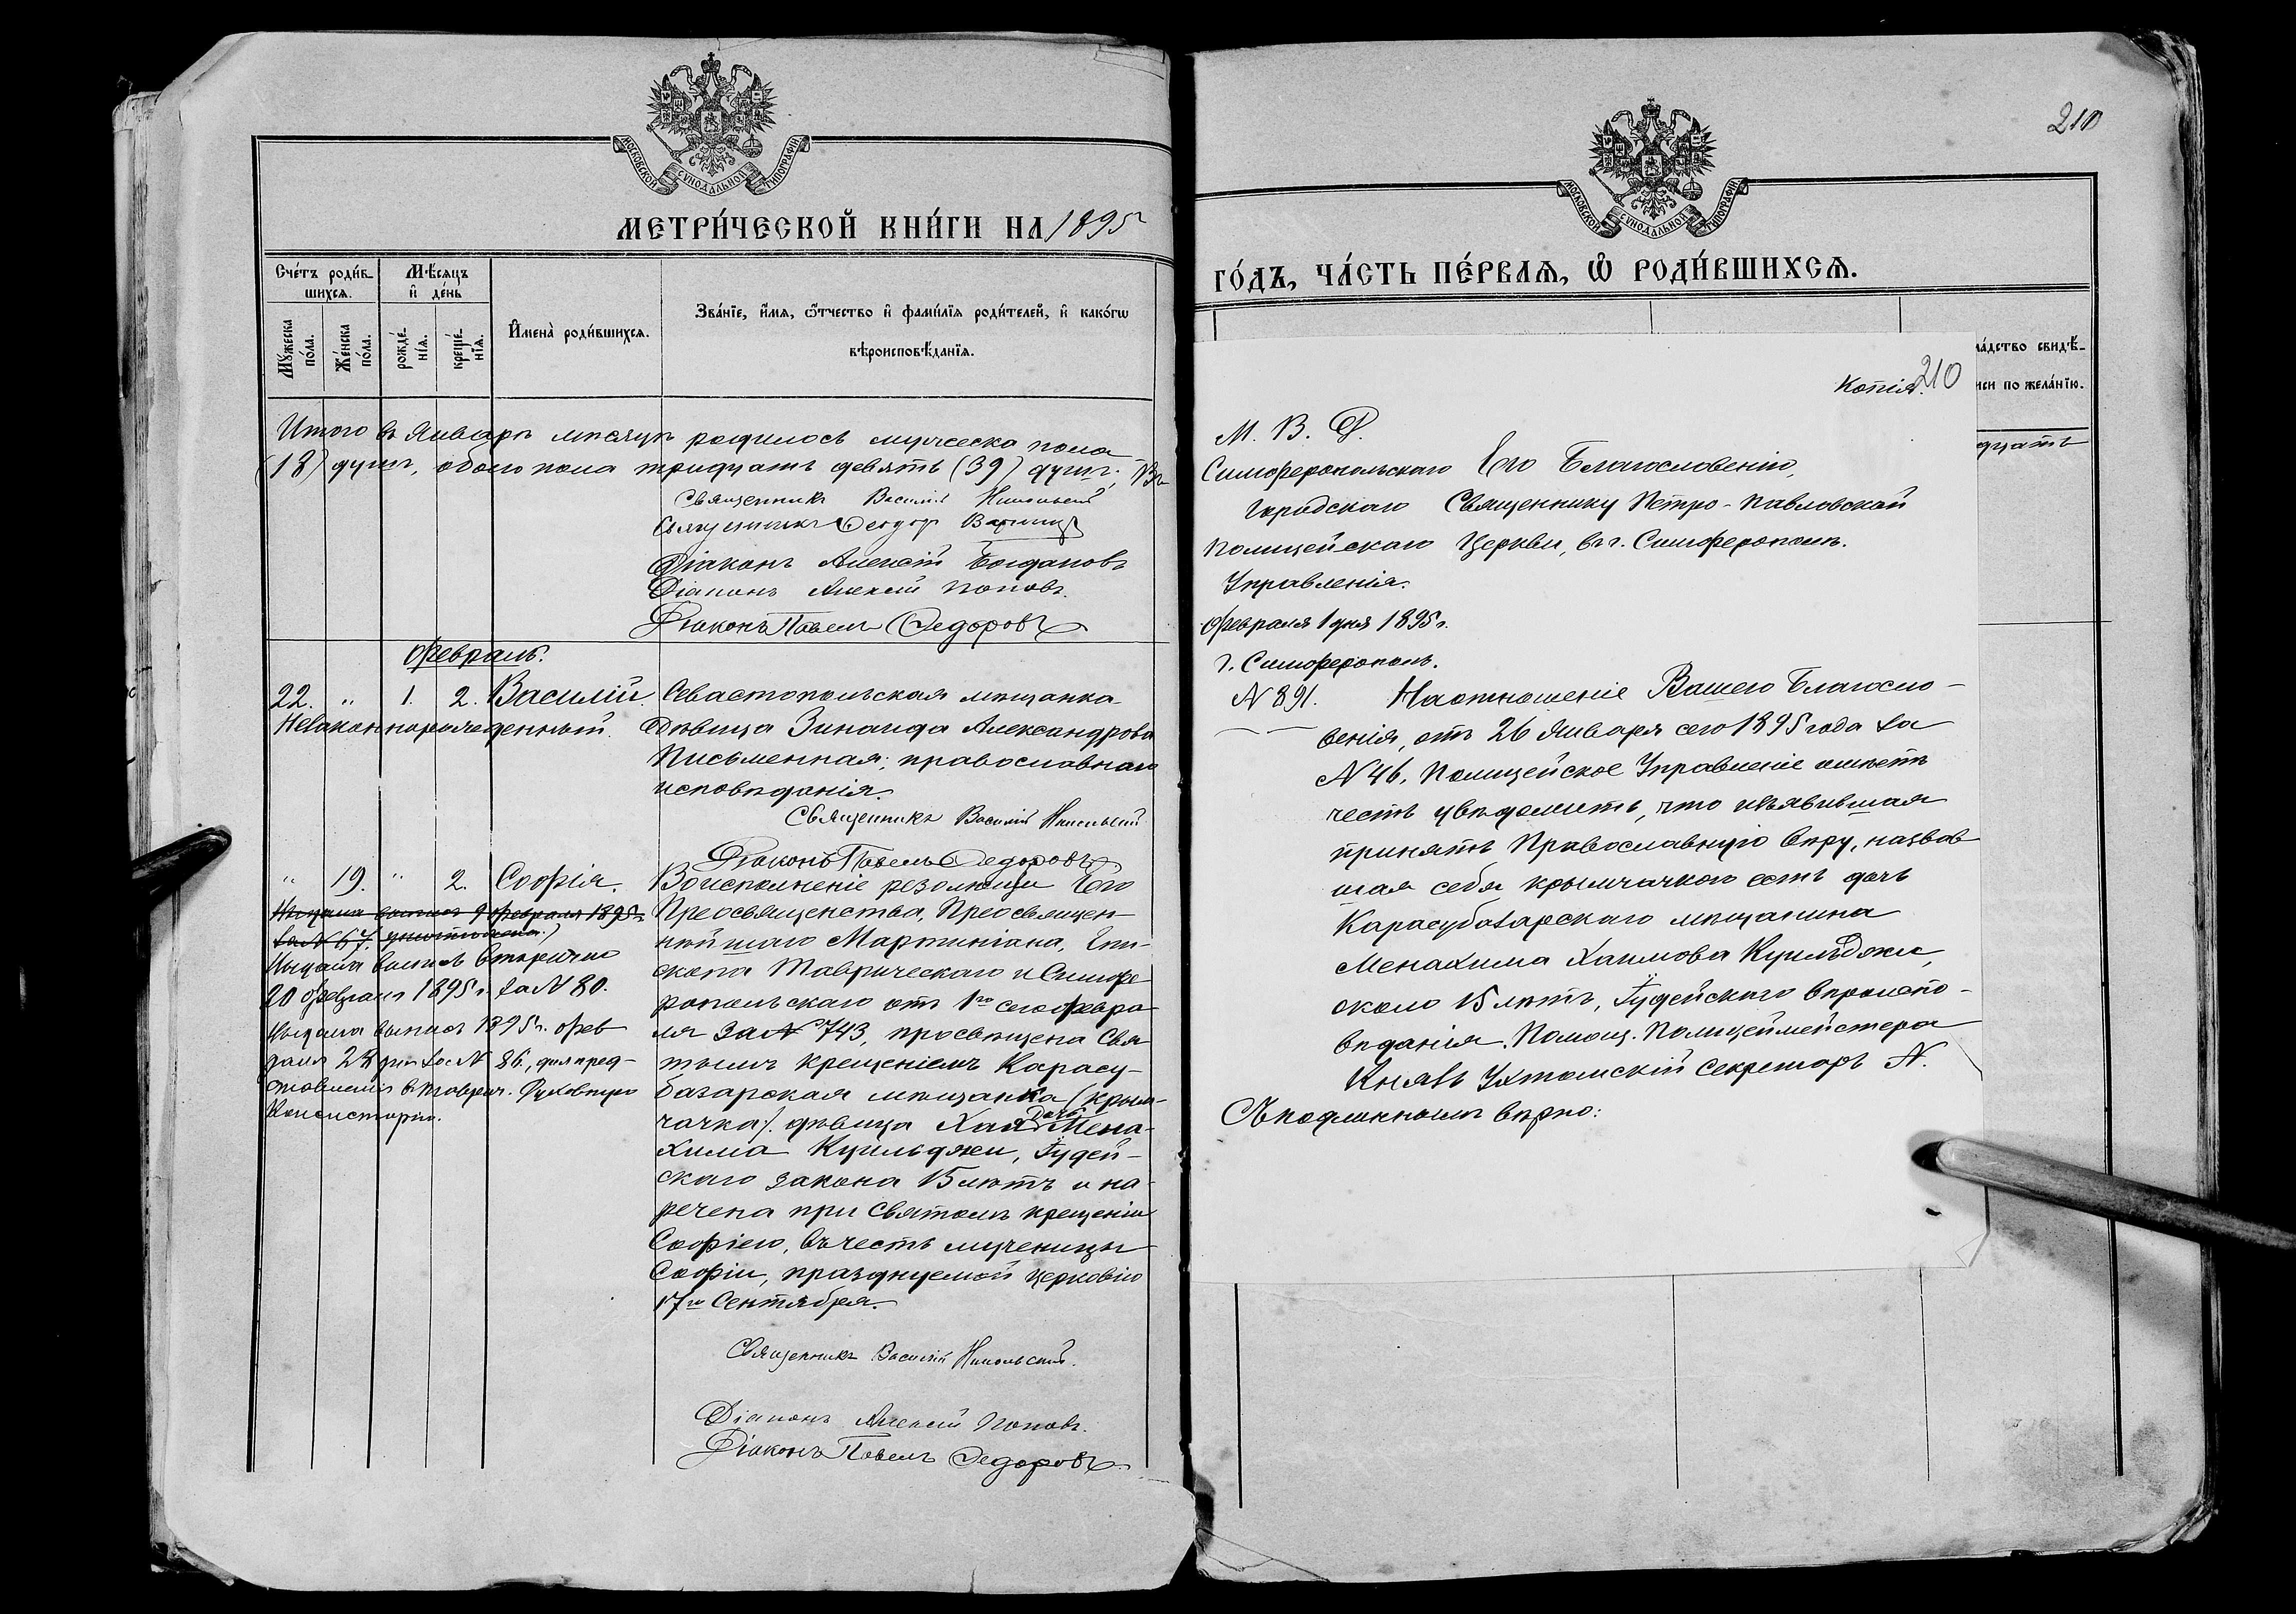 МОСКОВСКОЙ СѴНОДАЛЬНОЙ ТИПОГРАФІИ
МЕТРИ́ЧЕСКОЙ КНИ́ГИ НА 1895
Сче́тъ роди́в-
шихсѧ.
Мѣ́сѧцъ
и҆ де́нь
Мꙋ́жеска
по́ла.
Же́нска
по́ла.
рожде́-
нїѧ.
креще́-
нїѧ.
И҆мена̀ роди́вшихсѧ.
Зва́нїе, и҆́мѧ, ѻ҆́тчество и҆ фами́лїѧ роди́телей, и҆ како́гѡ
вѣроисповѣ́данїѧ.
Итого въ Январѣ мѣсяцѣ родилось мужеска пола
(18) душъ, обоего пола тридцать девять (39) душъ;
Священникъ Василій Никольскій
Священникъ Ѳеодор
Діаконъ Алексій Богдановъ
Діаконъ Алексій Поповъ.
Діаконъ Павелъ Ѳедоровъ
Февраль.
22. " 1. 2. Василій. Севастопольская мѣщанка
Незаконнорожденный. Дѣвица Зинаида Александрова
Письменная; православнаго
исповѣданія.
Священникъ Василій Никольскій
Діаконъ Павелъ Ѳедоровъ
" 19. " 2. Софія. Во исполненіе резолюціи Его
Выдана выпись 9 февраля 1895 г.
за N 67. уничтожена.)
Выдана выпись вторично
20 февраля 1895 г. за N 80.
Выдана выпись 1895 г. фев
раля 28 дня за N 86, для пред-
ставленія въ Таврич. Духовную
Консисторію.
Преосвященства, Преосвящен-
нѣйшаго Мартиніана, Епи-
скопа Таврическаго и Симфе
ропольскаго отъ 1го сего февра
ля за N 743, просвѣщена Свя
тымъ крещеніемъ Карасу-
базарская мѣщанка (крым-
чачка). дѣвица Хая дочь Мена-
хима Куильджи, Іудей-
скаго закона 15 лѣтъ и на-
речена при Святомъ крещеніи
Софіею, въ честь мученицы
Софіи, празднуемой церковію
17го Сентября.
Священникъ Василій Никольскій.
Діаконъ Алексій Поповъ.
Діаконъ Павелъ Ѳедоровъ
210
МОСКОВСКОЙ СѴНОДАЛЬНОЙ ТИПОГРАФІИ
ГО́ДЪ, ЧА́СТЬ ПЕ́РВАѦ, Ѽ РОДИ́ВШИХСѦ.
ла́дство свидѣ̑-
иси по жела́нїю.
дцать
Копія. 210
М. В. Д.
Симферопольскаго Его Благословенію,
Городскаго Священнику Петро-Павловской
Полицейскаго Церкви, въ г. Симферополѣ.
Управленія.
Февраля 1 дня 1895 г.
г. Симферополь.
N 891. На отношеніе Вашего Благосло-
венія, отъ 26 Января сего 1895 года за
N 46, Полицейское Управленіе имѣетъ
честь увѣдомить, что изъявившая
принять Православную вѣру, назвав
шая себя крымчачкою есть дочь
Карасубазарскаго мѣщанина
Менахима Хаимова Куильджи,
около 15 лѣтъ, Іудейскаго вѣроиспо-
вѣданія. Помощ. Полицеймейстера
Князь Ухтомскій Секретарь N.
Съ подлиннымъ вѣрно: